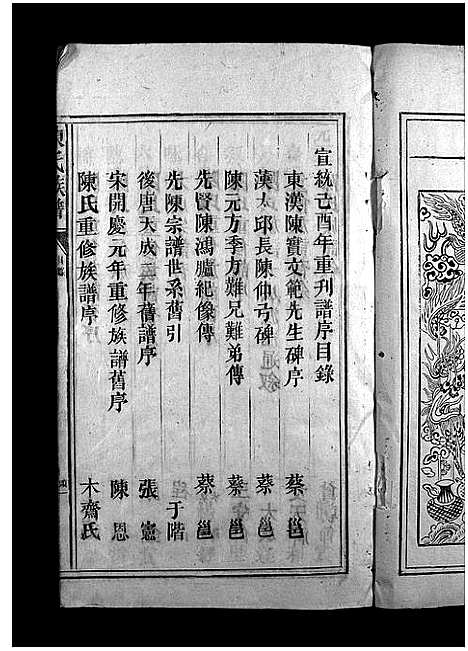 宣統己酉年重刊譜序目錄
東漢陳實文範先生碑序 蔡邕
漢太邱長陳仲弓碑 蔡邕
陳元方季方難兄難弟傳 蔡邕
先賢陳鴻臚紀像傳 蔡邕
先陳宗譜世系舊引 于階
後唐天成二年舊譜序 張憲
宋開慶元年重修族譜舊序 陳恩
陳氏重修族譜序 木齋氏
陳氏族譜